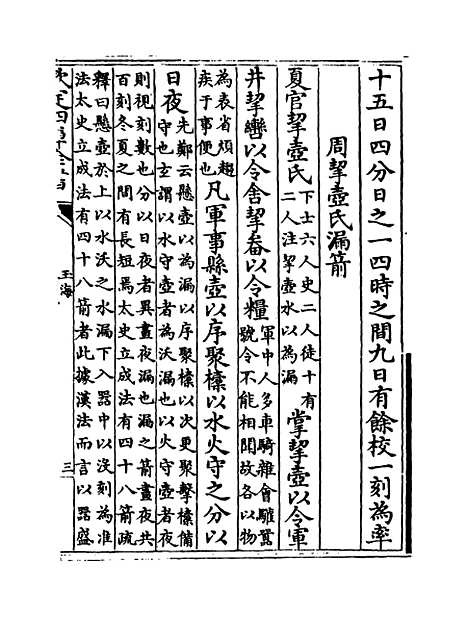 十五日四分日之一四時之間九日有餘校一刻為率
周挈壺氏漏箭
夏官挈壺氏下士六人史二人徒十有二人注挈壺水以為漏掌挈壺以令軍
井挈轡以令舍挈畚以令糧軍中人多車騎雜會讙囂號令不能相聞故各以物
為表省煩趨疾于事便也凡軍事縣壺以序聚㯓以水火守之分以
日夜先鄭云懸壺以為漏以序聚㯓以次更聚擊㯓備守也玄謂以水守壺者為沃漏也以火守壺者夜
則視刻數也分以日夜者異晝夜漏也漏之箭晝夜共百刻冬夏之間有長短焉太史立成法有四十八箭疏
釋曰懸壺於上以水沃之水漏下入器中以沒刻為準法太史立成法有四十八箭者此據漢法而言以器盛
玉海
三